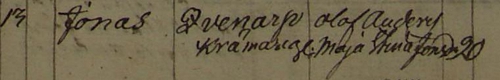 13 Jonas Qvenarp Olof Anders
Kramareg. Maja Stina Jonsd 20